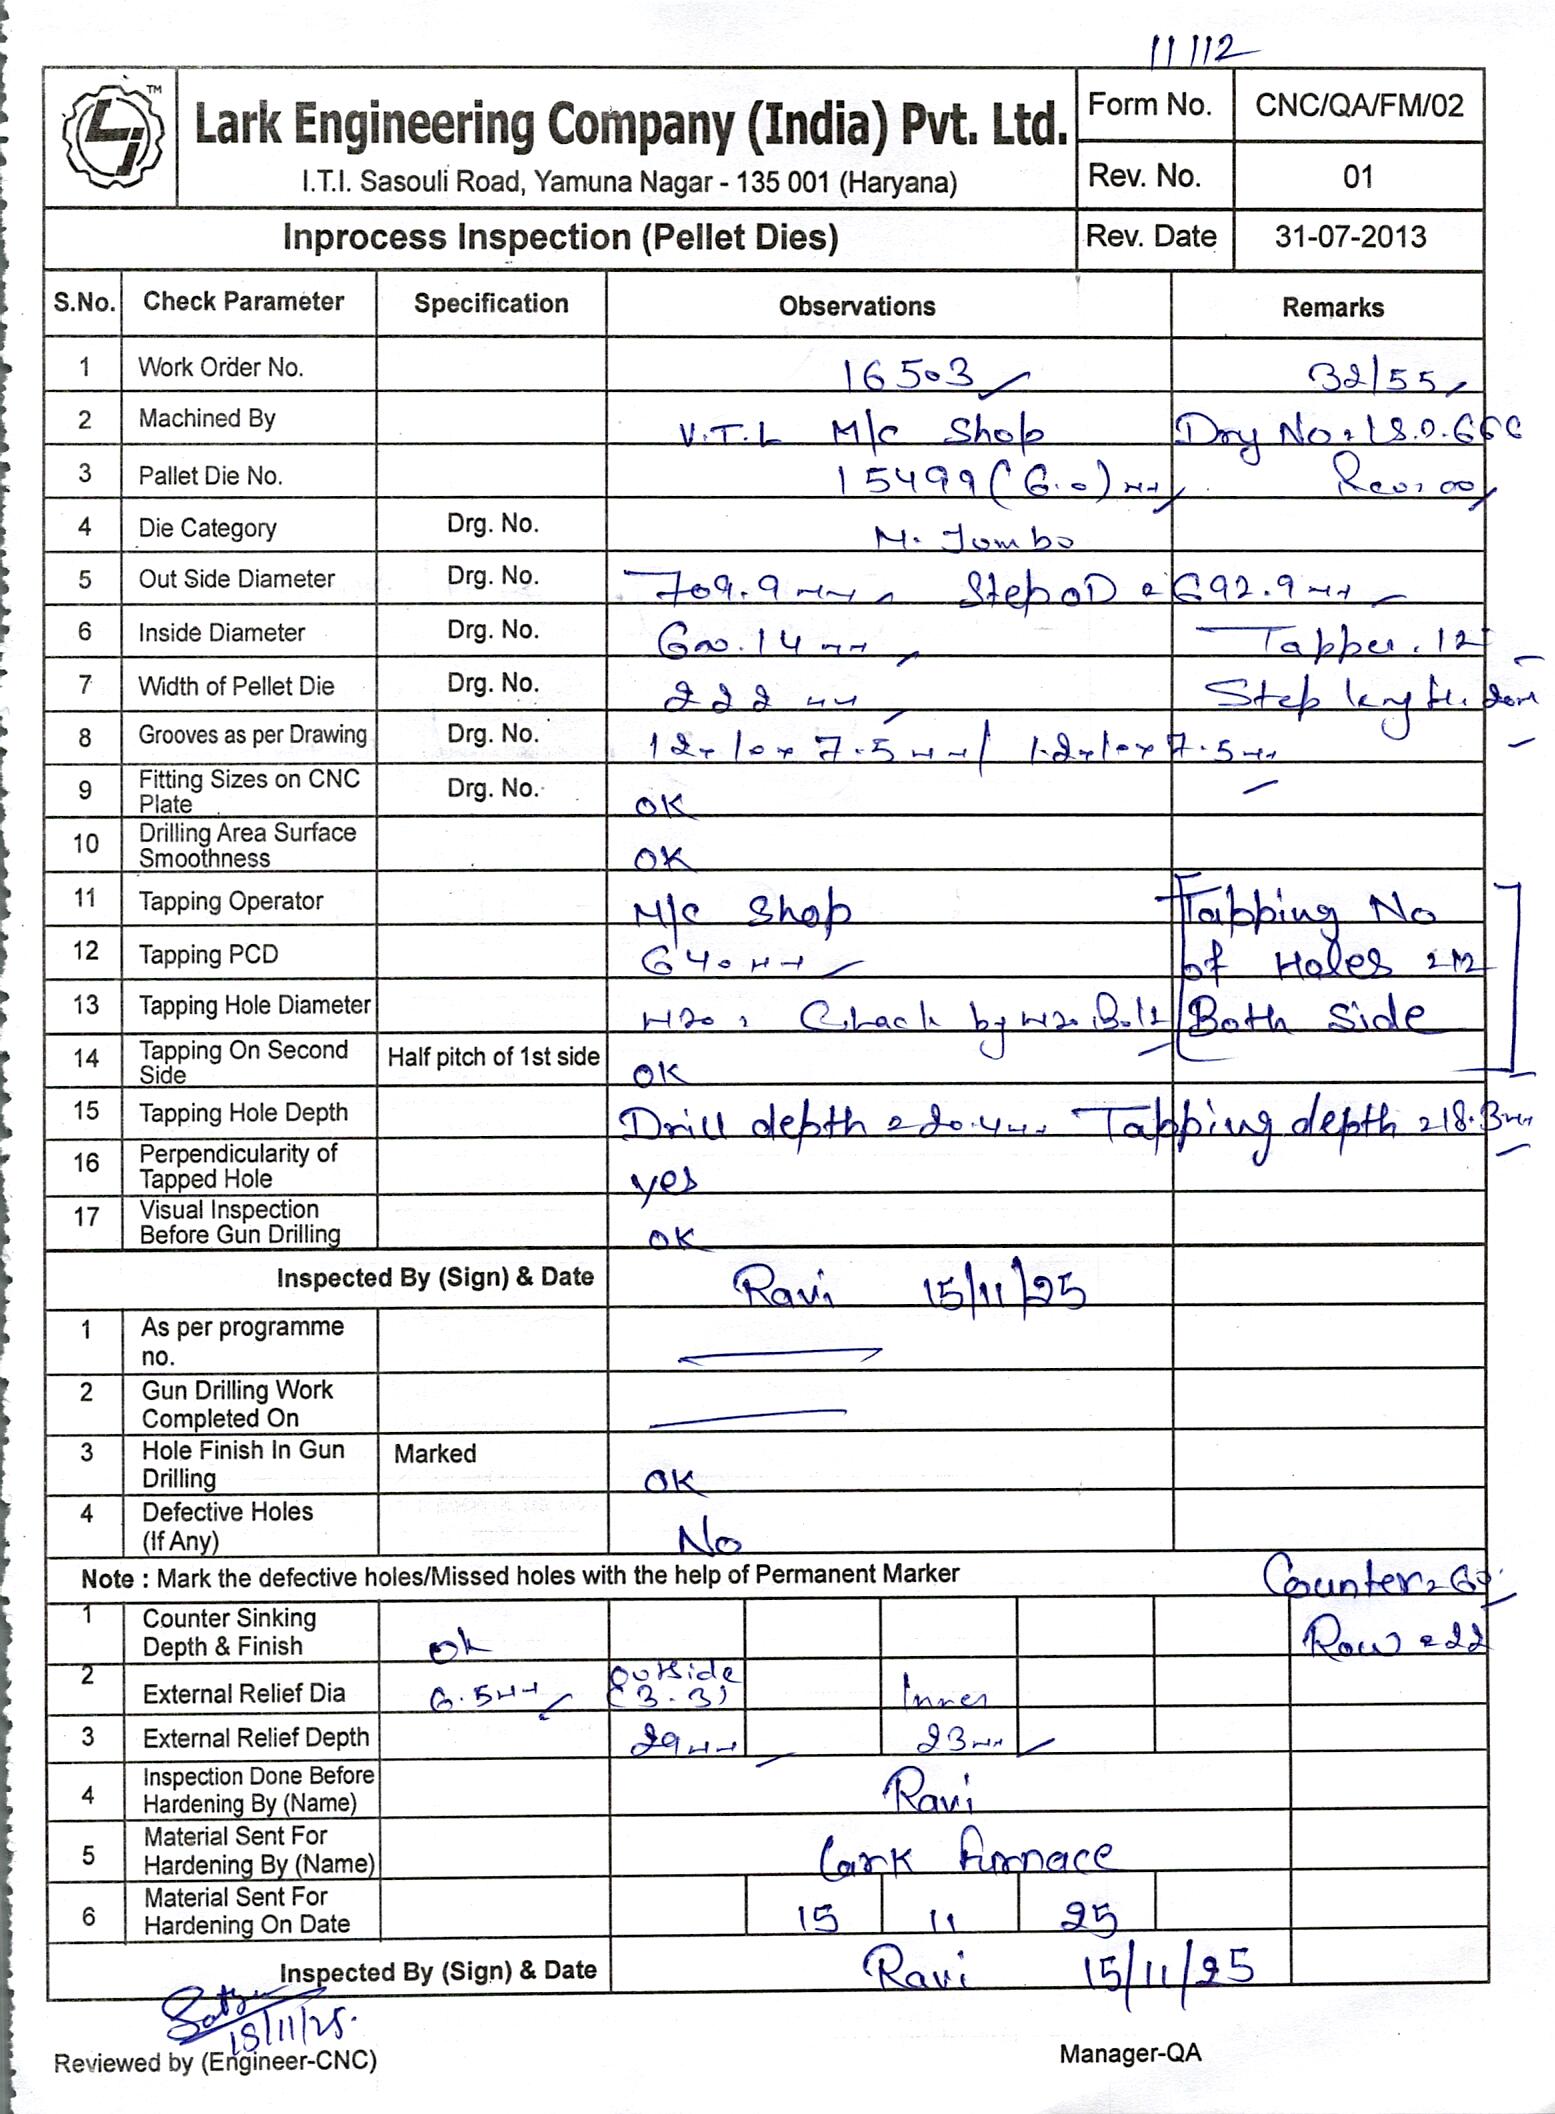 11112
TM
Lark Engineering Company (India) Pvt. Ltd.
I.T.I. Sasouli Road, Yamuna Nagar - 135 001 (Haryana)
Form No. CNC/QA/FM/02
Rev. No. 01
Inprocess Inspection (Pellet Dies) Rev. Date 31-07-2013
S.No. Check Parameter Specification Observations Remarks
1 Work Order No. 16503 32/55
2 Machined By V.T.L M/c Shop Drg No: LS.D.666
3 Pallet Die No. 15499 (6.0) mm Rev: 00
4 Die Category Drg. No. M. Jumbo
5 Out Side Diameter Drg. No. 709.9 mm Step OD = 692.9 mm
6 Inside Diameter Drg. No. 600.14 mm Tapper. 12
7 Width of Pellet Die Drg. No. 222 mm Step length. 20mm
8 Grooves as per Drawing Drg. No. 12x10x7.5mm / 12x10x7.5mm
9 Fitting Sizes on CNC Plate Drg. No. OK
10 Drilling Area Surface Smoothness OK
11 Tapping Operator M/c Shop Tapping No
12 Tapping PCD 640mm of Holes = 12
13 Tapping Hole Diameter M20, Chack by M20 Bolt Both Side
14 Tapping On Second Side Half pitch of 1st side OK
15 Tapping Hole Depth Drill depth = 20.4mm Tapping depth = 18.3mm
16 Perpendicularity of Tapped Hole yes
17 Visual Inspection Before Gun Drilling OK
Inspected By (Sign) & Date Ravi 15/11/25
1 As per programme no.
2 Gun Drilling Work Completed On
3 Hole Finish In Gun Drilling Marked OK
4 Defective Holes (If Any) No
Note : Mark the defective holes/Missed holes with the help of Permanent Marker Counter = 60°
1 Counter Sinking Depth & Finish ok Row = 22
2 External Relief Dia 6.5mm Outside (3.3) Inner
3 External Relief Depth 29mm 23mm
4 Inspection Done Before Hardening By (Name) Ravi
5 Material Sent For Hardening By (Name) Lark furnace
6 Material Sent For Hardening On Date 15 11 25
Inspected By (Sign) & Date Ravi 15/11/25
18/11/25.
Reviewed by (Engineer-CNC) Manager-QA